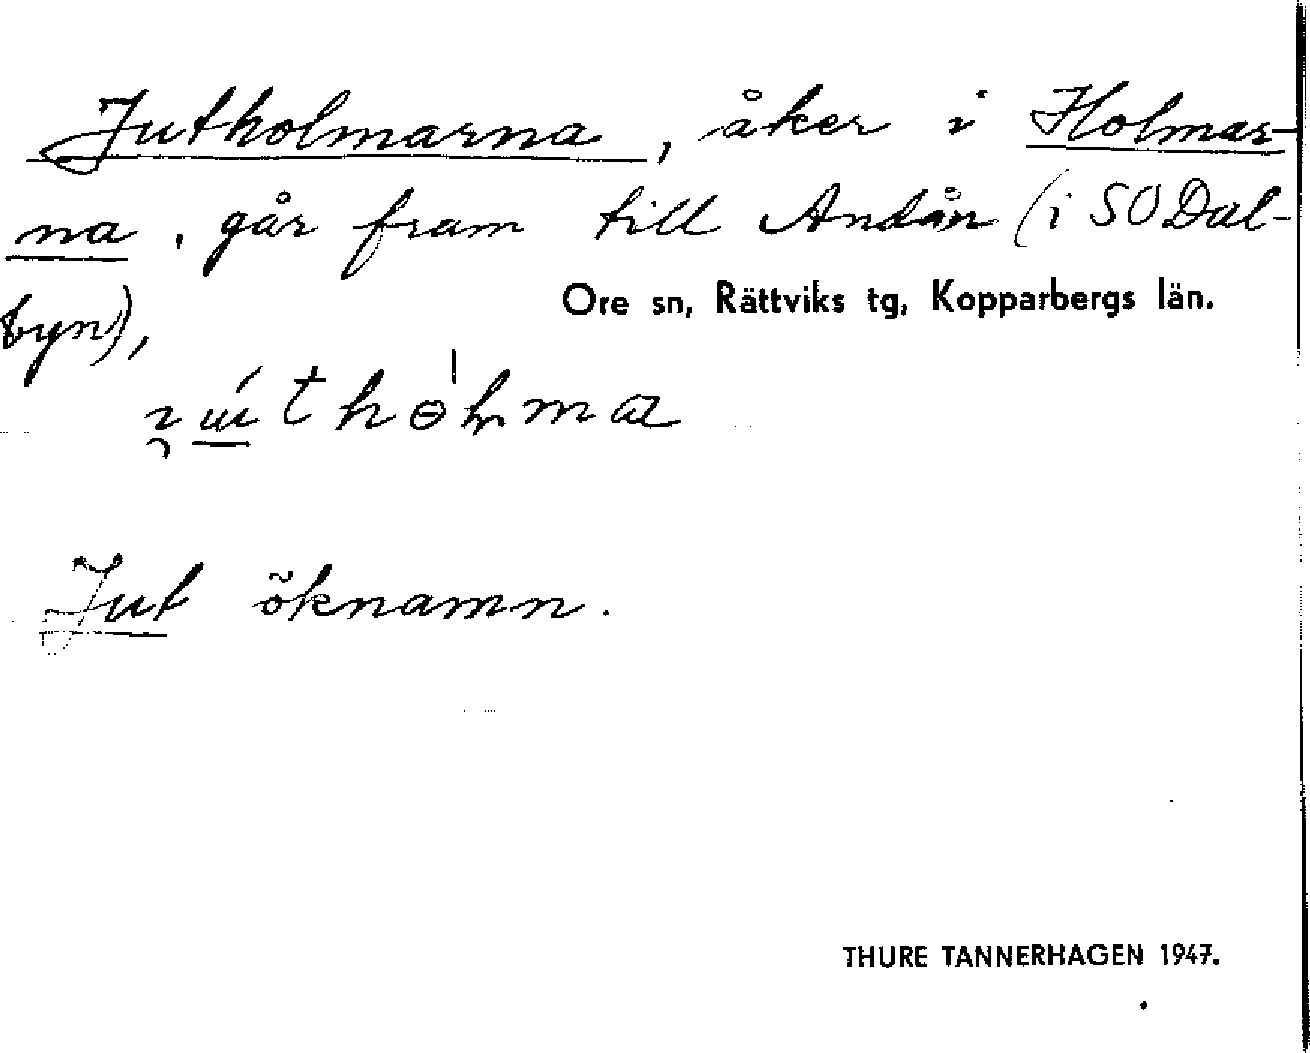 Jutholmarna, åker i Holmar-
na, går fram till Andån (i SO Dal-
byn),
Ore sn, Rättviks tg, Kopparbergs län.
Jut öknamn.
THURE TANNERHAGEN 1947.